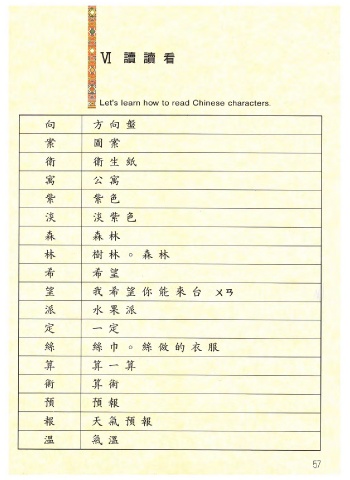 Ⅵ 讀讀看
Let's learn how to read Chinese characters.
向 方向盤
案 圖案
衛 衛生紙
寓 公寓
紫 紫色
淡 淡紫色
森 森林
林 樹林。森林
希 希望
望 我希望你能來台ㄨㄢ
派 水果派
定 一定
絲 絲巾。絲做的衣服
算 算一算
術 算術
預 預報
報 天氣預報
溫 氣溫
57